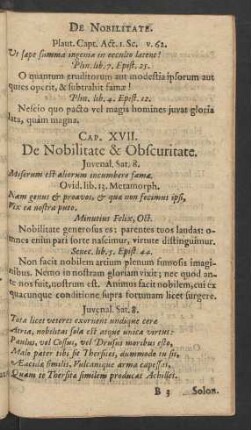 DE NOBILITATE.
Plaut. Capt. Act. 1. Sc. v. 62.
Ut sæpe summa ingenia in occulto latent!
Plin. lib. 7. Epist. 25.
O quantum eruditorum aut modestia ipsorum aut
quies operit, & subtrahit famæ!
Plin. lib. 4. Epist. 12.
Nescio quo pacto vel magis homines juvat gloria
lata, quàm magna.
CAP. XVII.
De Nobilitate & Obscuritate.
Juvenal. Sat. 8.
Miserum est aliorum incumbere famæ.
Ovid. lib. 13. Metamorph.
Nam genus & proavos, & quæ non fecimus ipsi,
Vix ea nostra puto.
Minutius Felix, Oct.
Nobilitate generosus es: parentes tuos laudas: o-
mnes enim pari sorte nascimur, virtute distinguimur.
Senec. lib. 5. Epist. 44.
Non facit nobilem atrium plenum fumosis imagi-
nibus. Nemo in nostram gloriam vixit; nec quod an-
te nos fuit, nostrum est. Animus facit nobilem, cui ex
quacunque conditione supra fortunam licet surgere.
Juvenal. Sat. 8.
Tota licet veteres exornent undique ceræ
Atria, nobilitas sola est atque unica virtus:
Paulus, vel Cossus, vel Drusus moribus esto,
Malo pater tibi sit Thersites, dummodo tu sis
Æacidæ similis, Vulcaniaque arma capessas,
Quam te Thersitæ similem producat Achilles.
B 3 Solon.